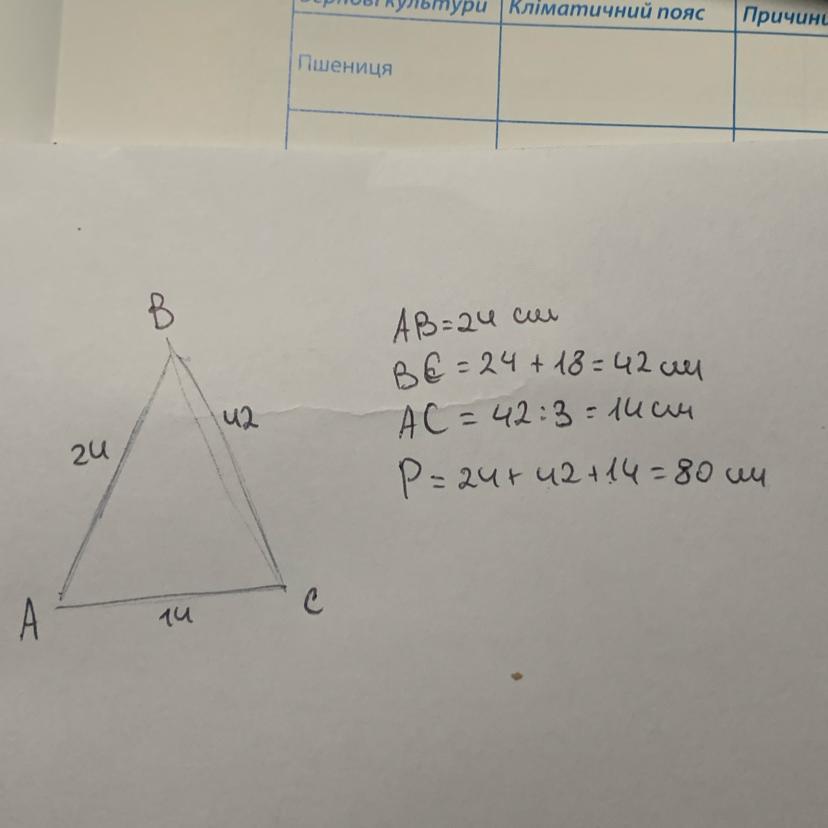 Зернові культури
Кліматичний пояс
Причини
Пшениця
B
24
42
A
14
C
AB = 24 см
BC = 24 + 18 = 42 см
AC = 42 : 3 = 14 см
P = 24 + 42 + 14 = 80 см